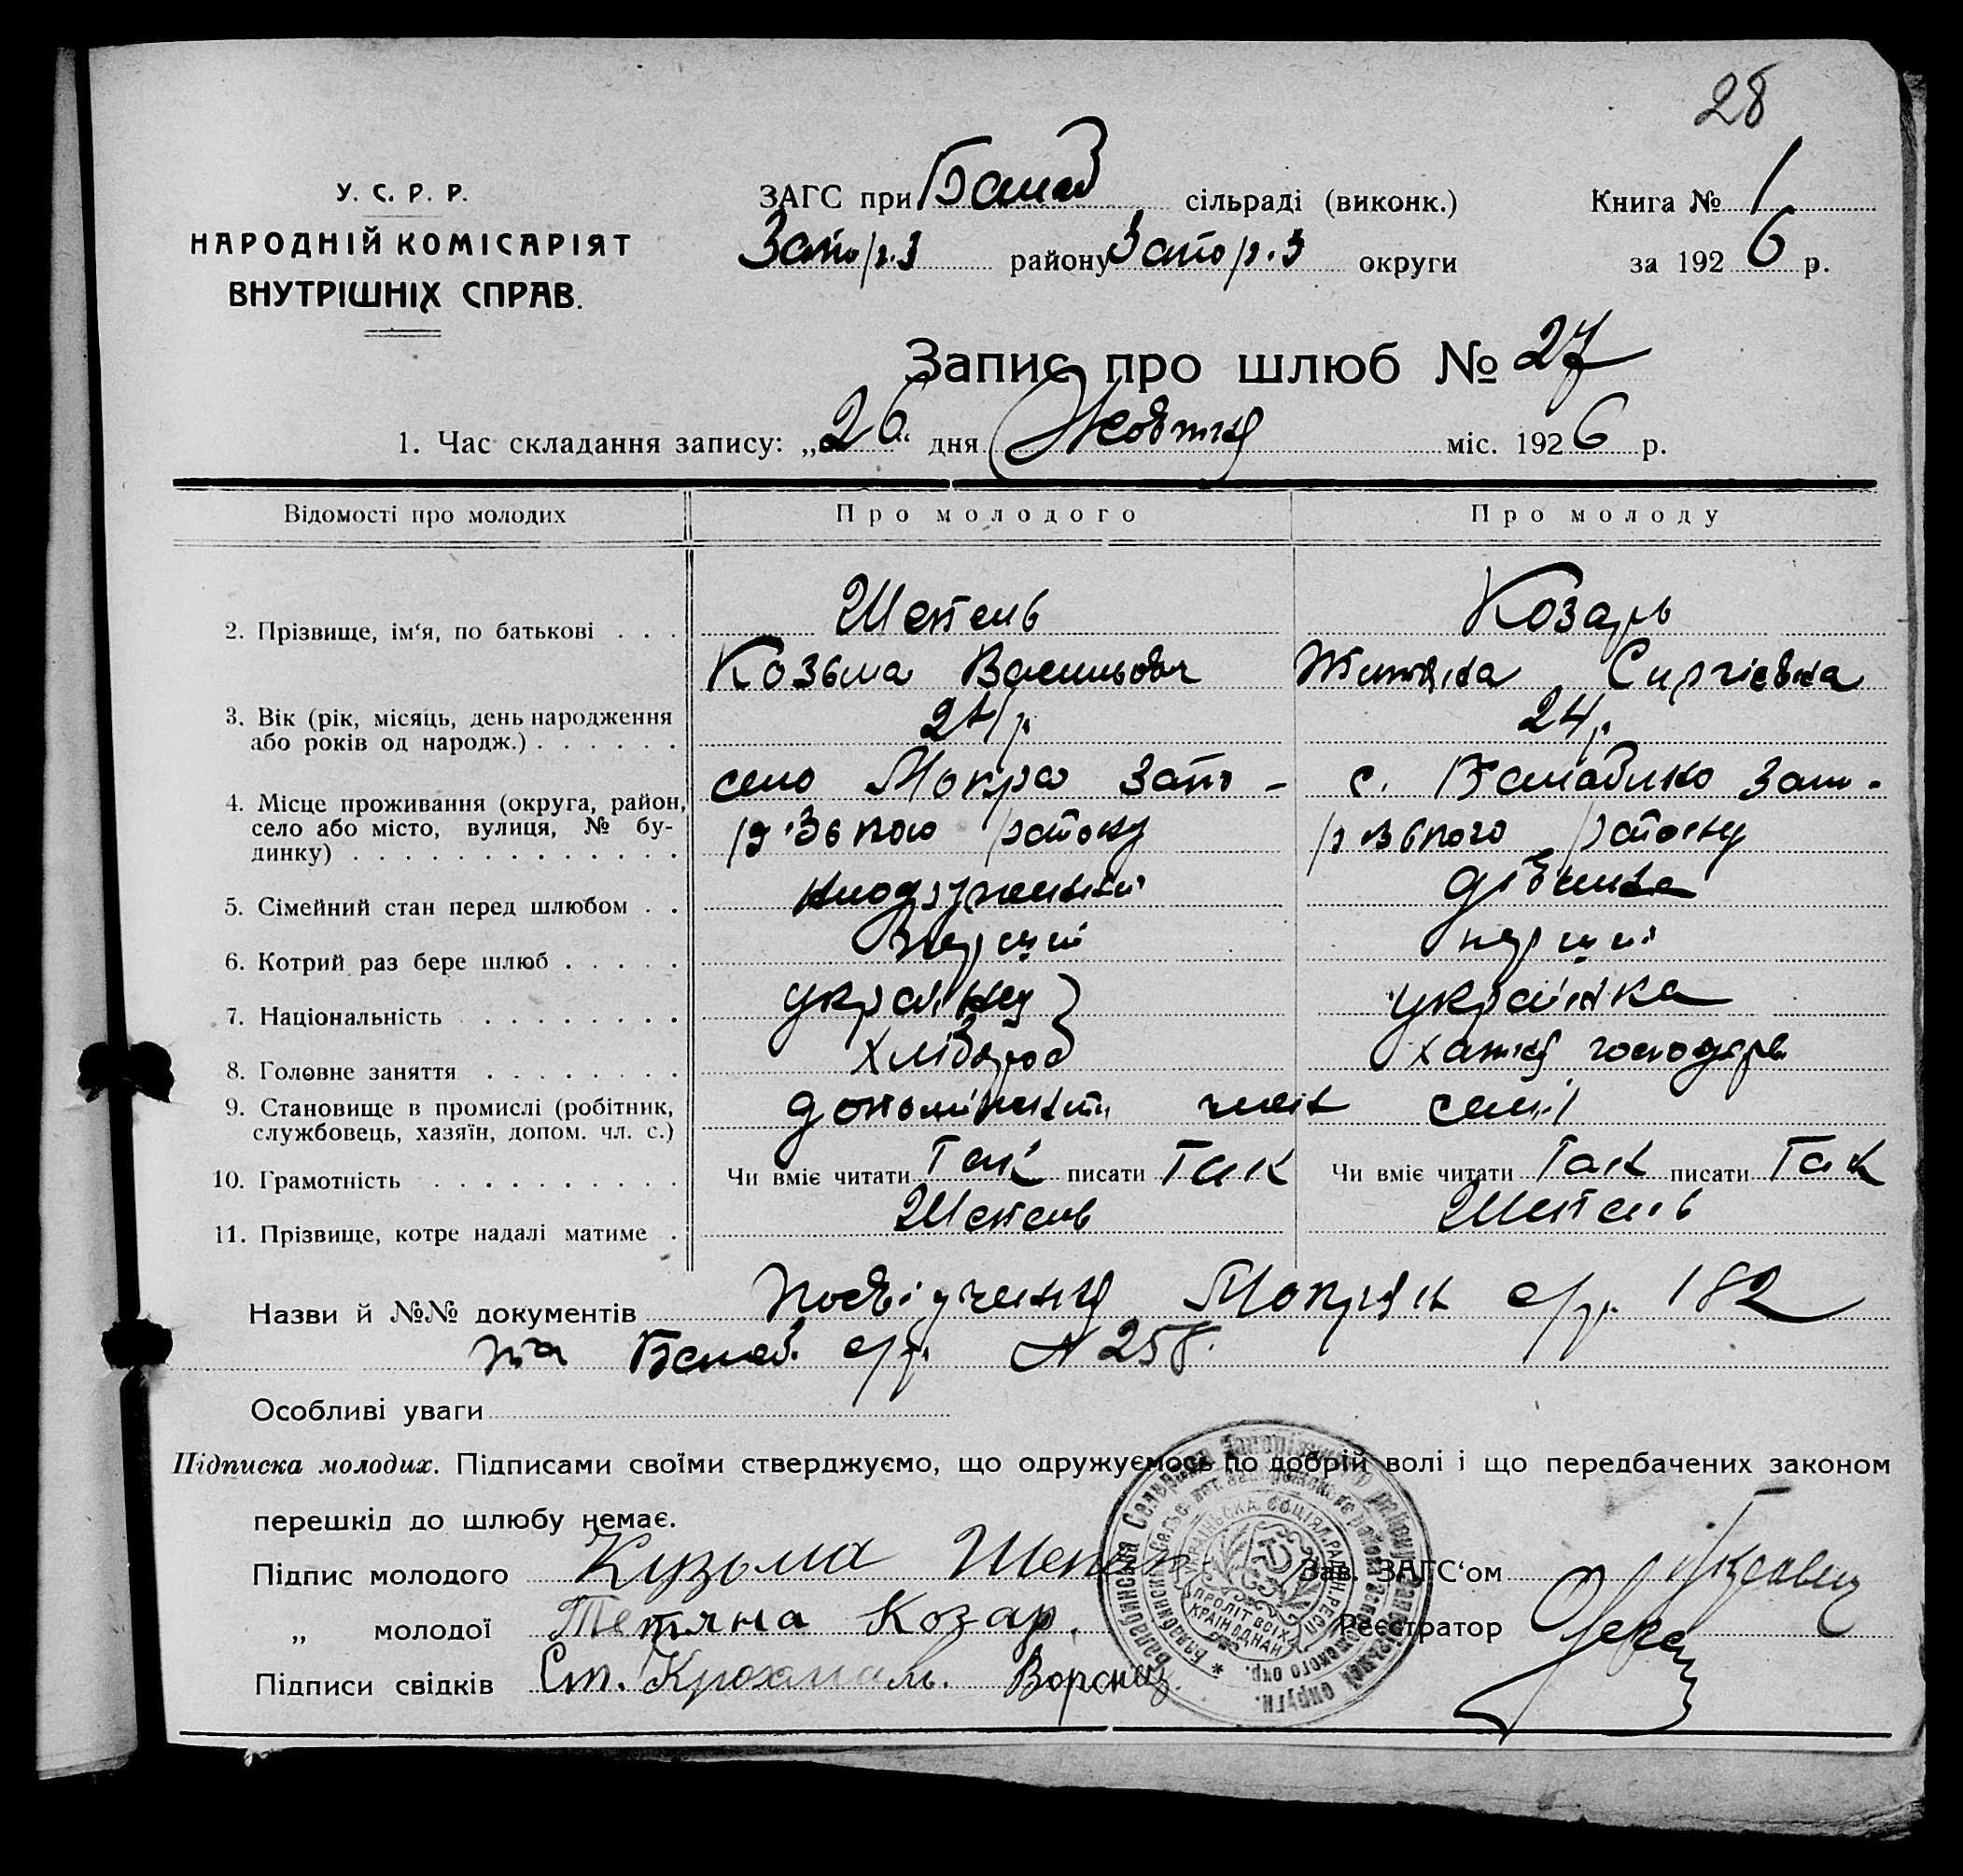 28
У. С. Р. Р.
НАРОДНІЙ КОМІСАРІЯТ
ВНУТРІШНІХ СПРАВ.
ЗАГС при Балаб сільраді (виконк.)
Запор.з району Запор.з округи
Книга № 1
за 1926 р.
Запис про шлюб № 27
1. Час складання запису: „26“ дня Жовтня міс. 1926 р.
Відомості про молодих Про молодого Про молоду
2. Прізвище, ім‘я, по батькові . . . Шепель Козарь
Козьма Васильович Титяна Сиргієвна
3. Вік (рік, місяць, день народження
або років од народж.) . . . . . . 24 р. 24 р.
4. Місце проживання (округа, район, село Мокра Запо- с. Балабино Запо-
село або місто, вулиця, № бу-
динку) . . . . . . . . . . . . .
5. Сімейний стан перед шлюбом . . дівчина
6. Котрий раз бере шлюб . . . . . перший перший
7. Національність . . . . . . . . українец українка
8. Головне заняття . . . . . . . . хлібороб хатня господарка
9. Становище в промислі (робітник,
службовець, хазяїн, допом. чл. с.) член семї
10. Грамотність . . . . . . . . . . Чи вміє читати Так писати Так Чи вміє читати Так писати Так
11. Прізвище, котре надалі матиме . Шепель Шепель
Назви й №№ документів посвідчення Мокрян с/р. 182
та Балаб. с/р. № 258.
Особливі уваги
Підписка молодих. Підписами своїми стверджуємо, що одружуємось по добрій волі і що передбачених законом
перешкід до шлюбу немає.
Підпис молодого Кузьма Шепель
„ молодої Тетяна Козар.
Підписи свідків Ст. Крохмаль.
Зав. ЗАГС‘ом
Реєстратор
УКРАЇНСЬКА СОЦІЯЛ. РАДЯН. РЕСП.
ПРОЛІТ ВСІХ
КРАЇН ЄДНАЙ